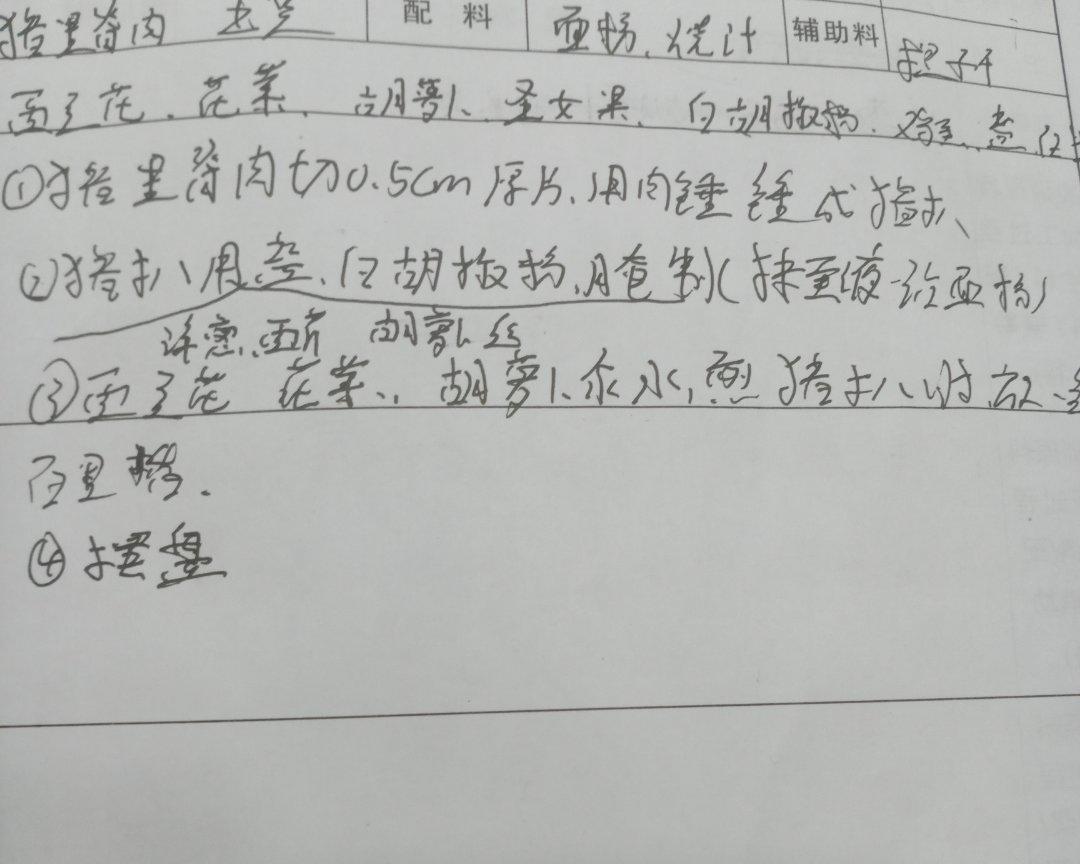 猪里脊肉 配料 面粉、烧汁 辅助料
西兰花、花菜、胡萝卜、圣女果、白胡椒粉、鸡蛋、
①猪里脊肉切0.5cm厚片,用肉锤锤成猪扒、
②猪扒八用盐、白胡椒粉、腌制(抹蛋液沾面粉)
洋葱、西芹 胡萝卜丝
③西兰花 花菜、胡萝卜汆水,煎猪扒八时放
④摆盘